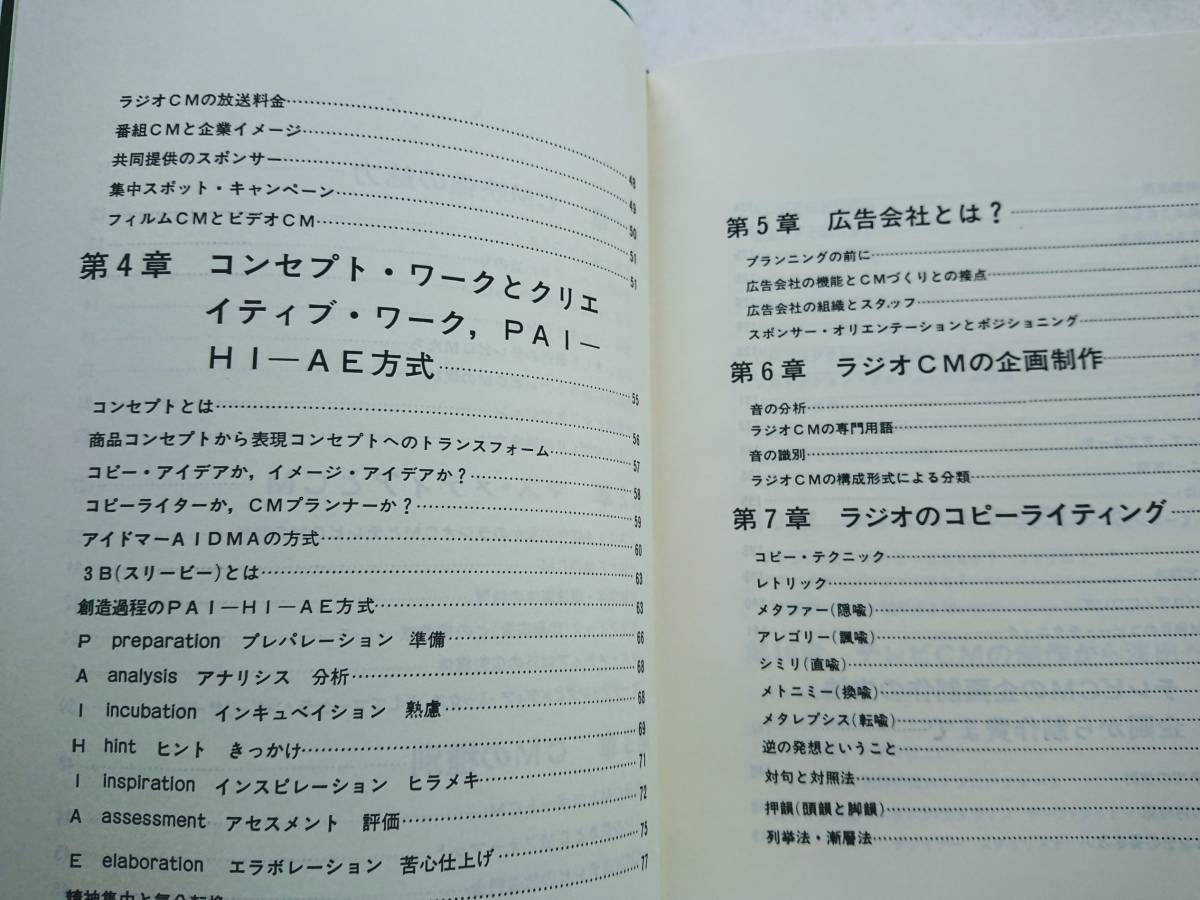 ラジオCMの放送料金……48
番組CMと企業イメージ……49
共同提供のスポンサー……50
集中スポット・キャンペーン……51
フィルムCMとビデオCM……51
第4章 コンセプト・ワークとクリエ
イティブ・ワーク，PAI—
HI—AE方式……55
コンセプトとは……56
商品コンセプトから表現コンセプトへのトランスフォーム……57
コピー・アイデアか，イメージ・アイデアか？……58
コピーライターか，CMプランナーか？……59
アイドマーAIDMAの方式……60
3B(スリービー)とは……63
創造過程のPAI—HI—AE方式……63
P preparation プレパレーション 準備……66
A analysis アナリシス 分析……68
I incubation インキュベイション 熟慮……68
H hint ヒント きっかけ……69
I inspiration インスピレーション ヒラメキ……71
A assessment アセスメント 評価……72
E elaboration エラボレーション 苦心仕上げ……75
……77
第5章 広告会社とは？……
プランニングの前に……
広告会社の機能とCMづくりとの接点……
広告会社の組織とスタッフ……
スポンサー・オリエンテーションとポジショニング……
第6章 ラジオCMの企画制作……
音の分析……
ラジオCMの専門用語……
音の識別……
ラジオCMの構成形式による分類……
第7章 ラジオのコピーライティング……
コピー・テクニック……
レトリック……
メタファー(隠喩)……
アレゴリー(諷喩)……
シミリ(直喩)……
メトニミー(換喩)……
メタレプシス(転喩)……
逆の発想ということ……
対句と対照法……
押韻(頭韻と脚韻)……
列挙法・漸層法……